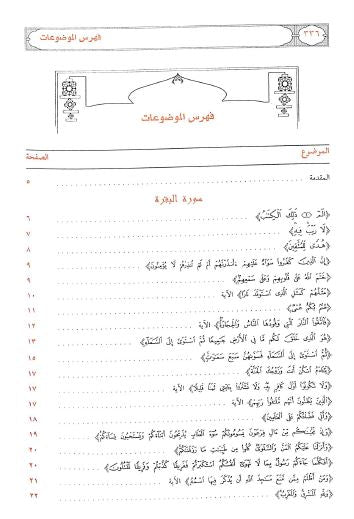 فهرس الموضوعات ٣٣٦
فهرس الموضوعات
الموضوع الصفحة
المقدمة ٥
سورة البقرة
﴿الٓمٓ ۝ ذَٰلِكَ ٱلْكِتَٰبُ﴾ ٦
﴿لَا رَيْبَ فِيهِ﴾ ٧
﴿هُدًى لِّلْمُتَّقِينَ﴾ ٨
﴿إِنَّ ٱلَّذِينَ كَفَرُوا۟ سَوَآءٌ عَلَيْهِمْ ءَأَنذَرْتَهُمْ أَمْ لَمْ تُنذِرْهُمْ لَا يُؤْمِنُونَ﴾ ٩
﴿خَتَمَ ٱللَّهُ عَلَىٰ قُلُوبِهِمْ وَعَلَىٰ سَمْعِهِمْ﴾ ٩
﴿مَثَلُهُمْ كَمَثَلِ ٱلَّذِى ٱسْتَوْقَدَ نَارًا﴾ الآية ١٠
﴿صُمٌّۢ بُكْمٌ عُمْىٌ﴾ ١١
﴿فَٱتَّقُوا۟ ٱلنَّارَ ٱلَّتِى وَقُودُهَا ٱلنَّاسُ وَٱلْحِجَارَةُ﴾ الآية ١٢
﴿هُوَ ٱلَّذِى خَلَقَ لَكُم مَّا فِى ٱلْأَرْضِ جَمِيعًا ثُمَّ ٱسْتَوَىٰٓ إِلَى ٱلسَّمَآءِ﴾ ١٣
﴿ثُمَّ ٱسْتَوَىٰٓ إِلَى ٱلسَّمَآءِ فَسَوَّىٰهُنَّ سَبْعَ سَمَٰوَٰتٍ﴾ ١٥
﴿يَٰٓـَٔادَمُ ٱسْكُنْ أَنتَ وَزَوْجُكَ ٱلْجَنَّةَ﴾ ١٧
﴿وَلَا تَكُونُوٓا۟ أَوَّلَ كَافِرٍۭ بِهِۦ وَلَا تَشْتَرُوا۟ بِـَٔايَٰتِى ثَمَنًا قَلِيلًا﴾ الآية ١٧
﴿ٱلَّذِينَ يَظُنُّونَ أَنَّهُم مُّلَٰقُوا۟ رَبِّهِمْ﴾ الآية ١٧
﴿وَأَنِّى فَضَّلْتُكُمْ عَلَى ٱلْعَٰلَمِينَ﴾ ١٨
﴿وَإِذْ نَجَّيْنَٰكُم مِّنْ ءَالِ فِرْعَوْنَ يَسُومُونَكُمْ سُوٓءَ ٱلْعَذَابِ يُذَبِّحُونَ أَبْنَآءَكُمْ وَيَسْتَحْيُونَ نِسَآءَكُمْ﴾ ١٩
﴿وَأَنزَلْنَا عَلَيْكُمُ ٱلْمَنَّ وَٱلسَّلْوَىٰ كُلُوا۟ مِن طَيِّبَٰتِ مَا رَزَقْنَٰكُمْ﴾ ٢٠
﴿أَفَكُلَّمَا جَآءَكُمْ رَسُولٌۢ بِمَا لَا تَهْوَىٰٓ أَنفُسُكُمُ ٱسْتَكْبَرْتُمْ فَفَرِيقًا كَذَّبْتُمْ وَفَرِيقًا تَقْتُلُونَ﴾ ٢٠
﴿وَمَنْ أَظْلَمُ مِمَّن مَّنَعَ مَسَٰجِدَ ٱللَّهِ أَن يُذْكَرَ فِيهَا ٱسْمُهُۥ﴾ الآية ٢١
﴿وَلِلَّهِ ٱلْمَشْرِقُ وَٱلْمَغْرِبُ﴾ ٢٢